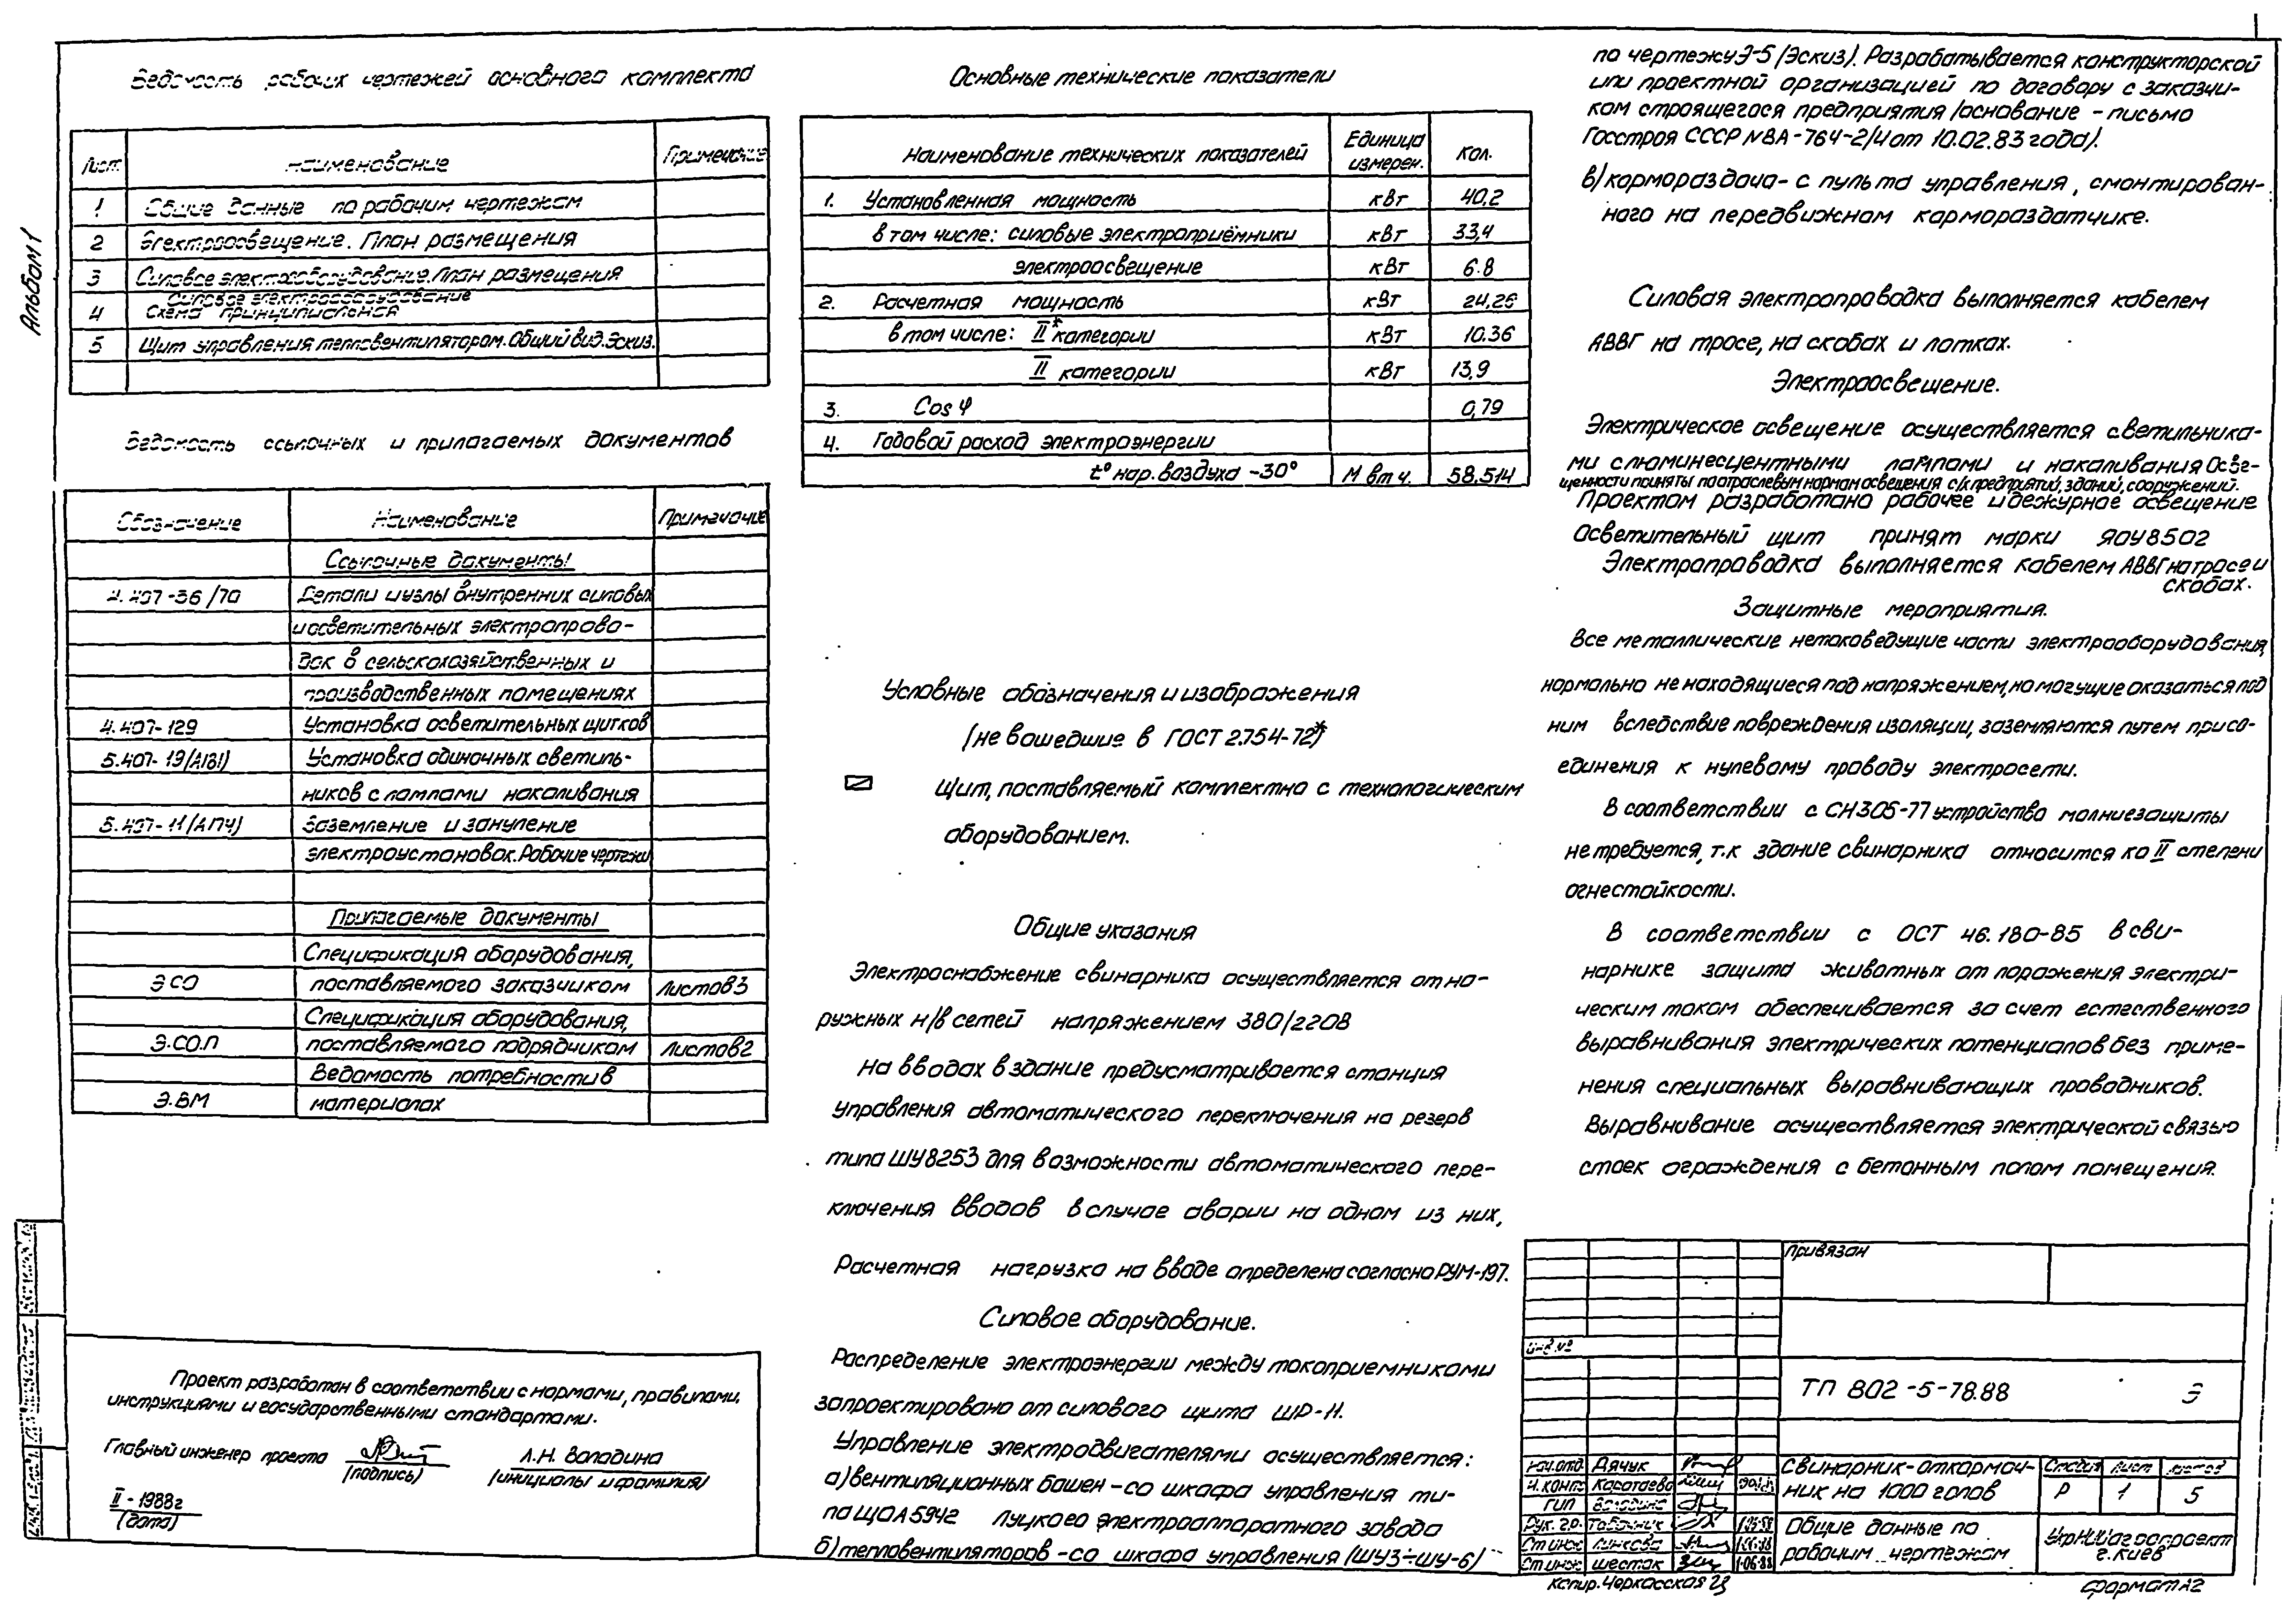 Альбом 1
Ведомость рабочих чертежей основного комплекта
Лист Наименование Примечание
1 Общие данные по рабочим чертежам
2 Электроосвещение. План размещения
3 Силовое электрооборудование. План размещения
4 Силовое электрооборудование
Схема принципиальная
5 Щит управления тепловентилятором. Общий вид. Эскиз.
Ведомость ссылочных и прилагаемых документов
Обозначение Наименование Примечание
Ссылочные документы
4.407-36/70 Детали и узлы внутренних силовых
и осветительных электропрово-
док в сельскохозяйственных и
производственных помещениях
4.407-129 Установка осветительных щитков
5.407-19/А181) Установка одиночных светиль-
ников с лампами накаливания
5.407-11/АПЧ) Заземление и зануление
электроустановок. Рабочие чертежи
Прилагаемые документы
Спецификация оборудования,
Э СО поставляемого заказчиком Листов 3
Спецификация оборудования,
Э.СО.П поставляемого подрядчиком Листов 2
Ведомость потребности в
Э.ВМ материалах
Проект разработан в соответствии с нормами, правилами,
инструкциями и государственными стандартами.
Главный инженер проекта Л.Н. Володина
(подпись) (инициалы и фамилия)
II - 1988г
(дата)
Основные технические показатели
Наименование технических показателей Единица измерен. Кол.
1. Установленная мощность кВт 40,2
в том числе: силовые электроприёмники кВт 33,4
электроосвещение кВт 6.8
2. Расчетная мощность кВт 24,26
в том числе: II* категории кВт 10.36
II категории кВт 13,9
3. Cos φ 0,79
4. Годовой расход электроэнергии
t° нар. воздуха -30° М вт ч. 58.514
Условные обозначения и изображения
(не вошедшие в ГОСТ 2.754-72*)
Щит, поставляемый комплектно с технологическим
оборудованием.
Общие указания
Электроснабжение свинарника осуществляется от на-
ружных н/в сетей напряжением 380/220В
На вводах в здание предусматривается станция
управления автоматического переключения на резерв
типа ШУ8253 для возможности автоматического пере-
ключения вводов в случае аварии на одном из них,
Расчетная нагрузка на вводе определена согласно РУМ-197.
Силовое оборудование.
Распределение электроэнергии между токоприемниками
запроектировано от силового щита ШР-11.
Управление электродвигателями осуществляется:
а) вентиляционных башен - со шкафа управления ти-
па ЩОА5942 Луцкого электроаппаратного завода
б) тепловентиляторов - со шкафа управления (ШУ3÷ШУ-6)
по чертежу Э-5 /Эскиз). Разрабатывается конструкторской
или проектной организацией по договору с заказчи-
ком строящегося предприятия /основание - письмо
Госстроя СССР №ВА-764-2/4 от 10.02.83 года).
в) кормораздача - с пульта управления, смонтирован-
ного на передвижном кормораздатчике.
Силовая электропроводка выполняется кабелем
АВВГ на тросе, на скобах и лотках.
Электроосвещение.
Электрическое освещение осуществляется светильника-
ми с люминесцентными лампами и накаливания Осве-
щенности приняты по отраслевым нормам освещения с/х предприятий, зданий, сооружений.
Проектом разработано рабочее и дежурное освещение
Осветительный щит принят марки ЯОУ8502
Электропроводка выполняется кабелем АВВГ на тросе и
скобах.
Защитные мероприятия.
Все металлические нетоковедущие части электрооборудования,
нормально не находящиеся под напряжением, но могущие оказаться под
ним вследствие повреждения изоляции, заземляются путем присо-
единения к нулевому проводу электросети.
В соответствии с СН305-77 устройство молниезащиты
не требуется, т.к здание свинарника относится ко II степени
огнестойкости.
В соответствии с ОСТ 46.180-85 в сви-
нарнике защита животных от поражения электри-
ческим током обеспечивается за счет естественного
выравнивания электрических потенциалов без приме-
нения специальных выравнивающих проводников.
Выравнивание осуществляется электрической связью
стоек ограждения с бетонным полом помещения.
Привязан
Инв №
ТП 802-5-78.88 Э
Нач.отд Дячук
Н.конт. Каратаева
ГИП Володина
Рук. гр.
Ст инж
Ст инж Шестак 1-06.88
Свинарник-откормоч-
ник на 1000 голов
Стадия Лист Листов
Р 1 5
Общие данные по
рабочим чертежам
УкрНИИагропроект
г. Киев
Копир. Черкасская
Формат А2